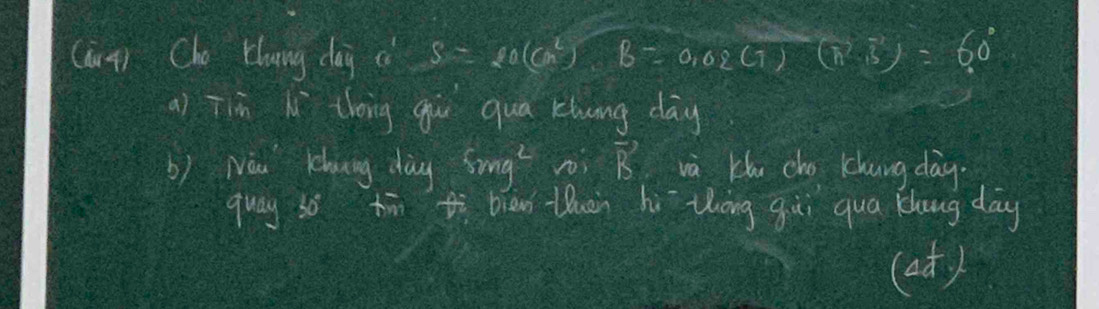 Câu 4) Cho khung dây có S = 20(cm²). B = 0,02(T) (n⃗, B⃗) = 60°
a) Tìm từ thông gửi qua khung dây
b) Nếu khung dây song² với B⃗ và khi cho khung dây.
quay 30° tìm độ biến thiên từ thông gửi qua khung dây
(4đ.)